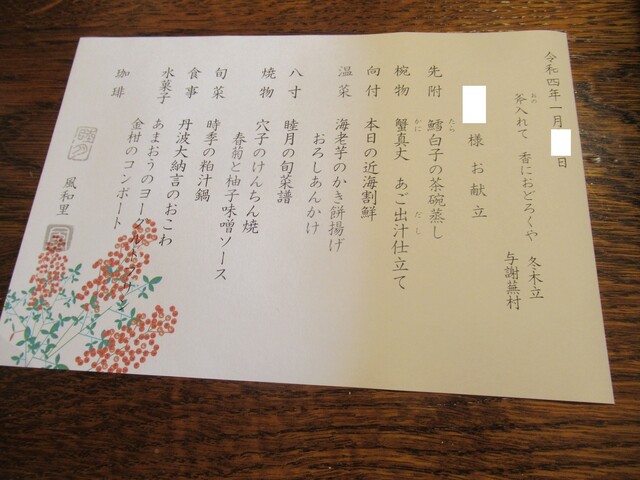 令和四年一月 日
斧入れて 香におどろくや 冬木立
おの
与謝蕪村
様 お献立
先附 鱈白子の茶碗蒸し
たら
椀物 蟹真丈 あご出汁仕立て
かに だし
向付 本日の近海割鮮
温菜 海老芋のかき餅揚げ
おろしあんかけ
八寸 睦月の旬菜譜
焼物 穴子のけんちん焼
春菊と柚子味噌ソース
旬菜 時季の粕汁鍋
食事 丹波大納言のおこわ
水菓子 あまおうのヨーグルトプリン
金柑のコンポート
珈琲
風和里